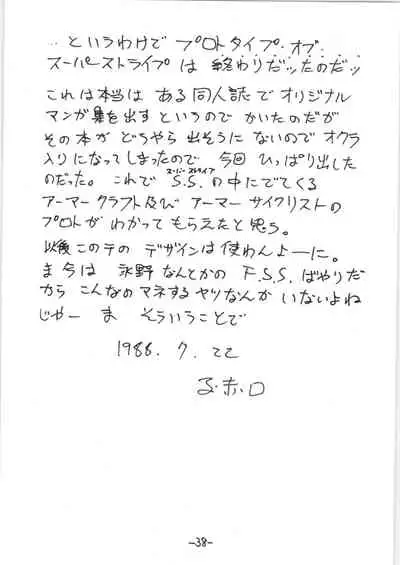 …というわけで プロトタイプ・オブ・
スーパーストライプは 終わりだッたのだッ
これは本当は ある同人誌でオリジナル
マンガ集を出すというのでかいたのだが
その本が どうやら出そうにないのでオクラ
入りになってしまったので 今回 ひっぱり出した
のだった。これで S.S.の中にでてくる
スーパーストライプ
アーマークラフト及び アーマーサイクリストの
プロトが わかってもらえたと思う。
以後このテの デザインは使わんよーに。
ま今は 永野なんとかの F.S.S.ばやりだ
から こんなのマネするヤツなんか いないよね
じゃー ま そういうことで
1988. 7. 22
-38-